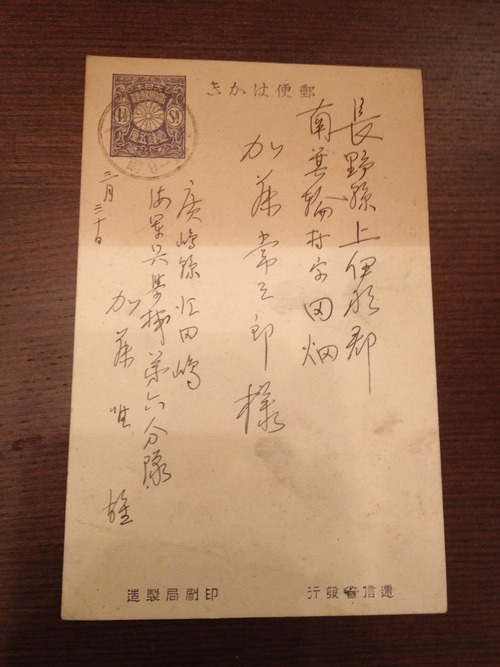 郵便はかき
長野縣上伊那郡
南箕輪村字田畑
加藤常三郎様
廣嶋縣江田嶋
海軍兵學校第六分隊
加藤
雄
三月三十日
逓信省發行
印刷局製造